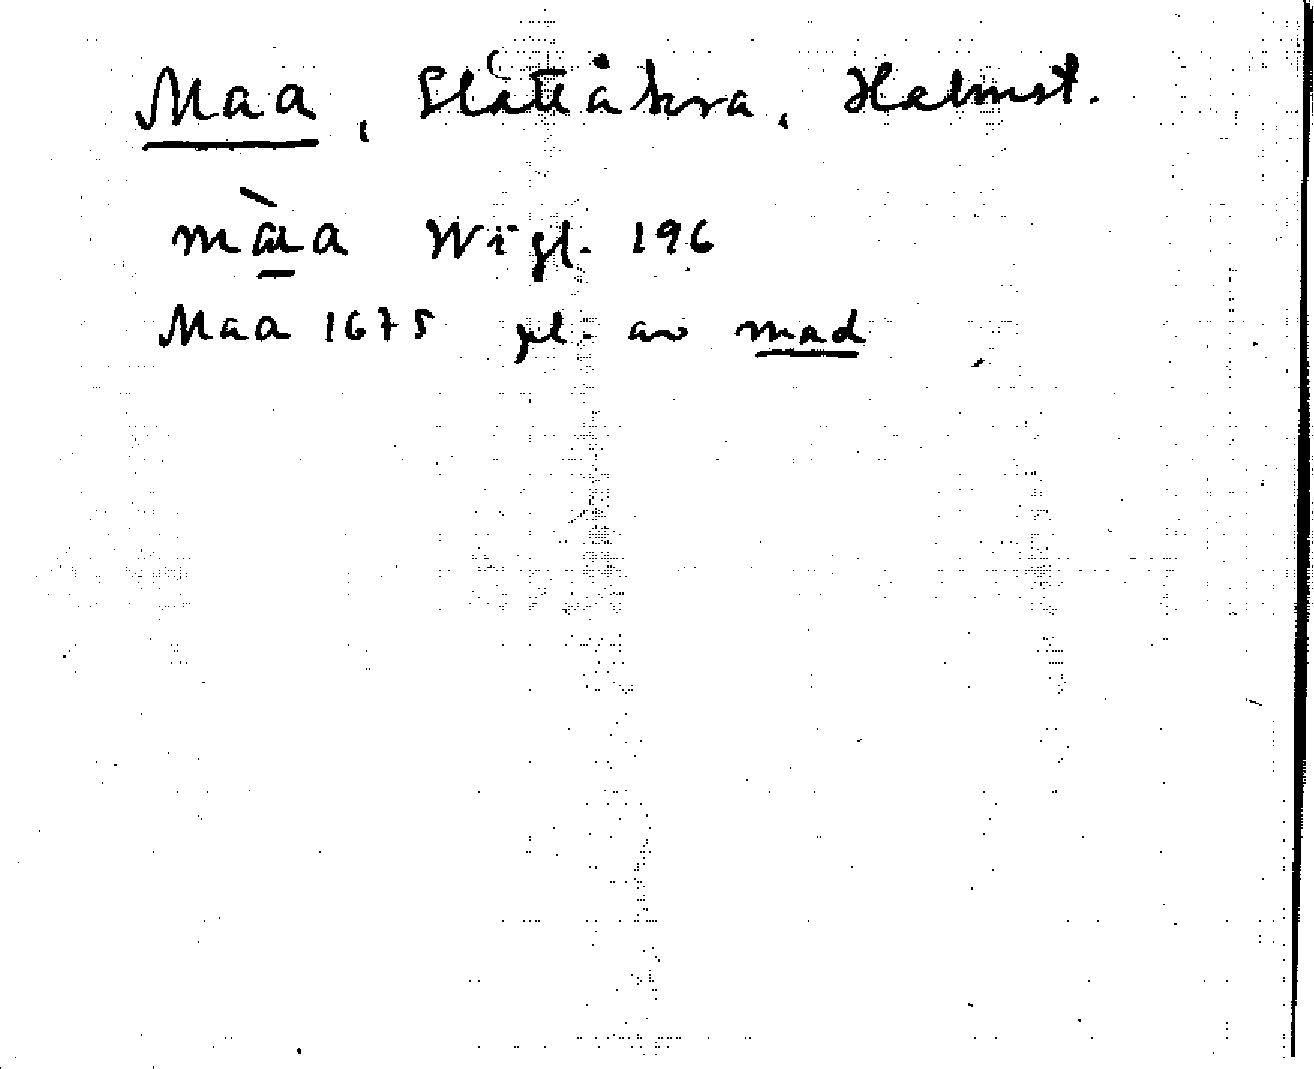 Maa, Slättåkra, Halmst.
màa Wigf. 196
Maa 1675 pl. av mad